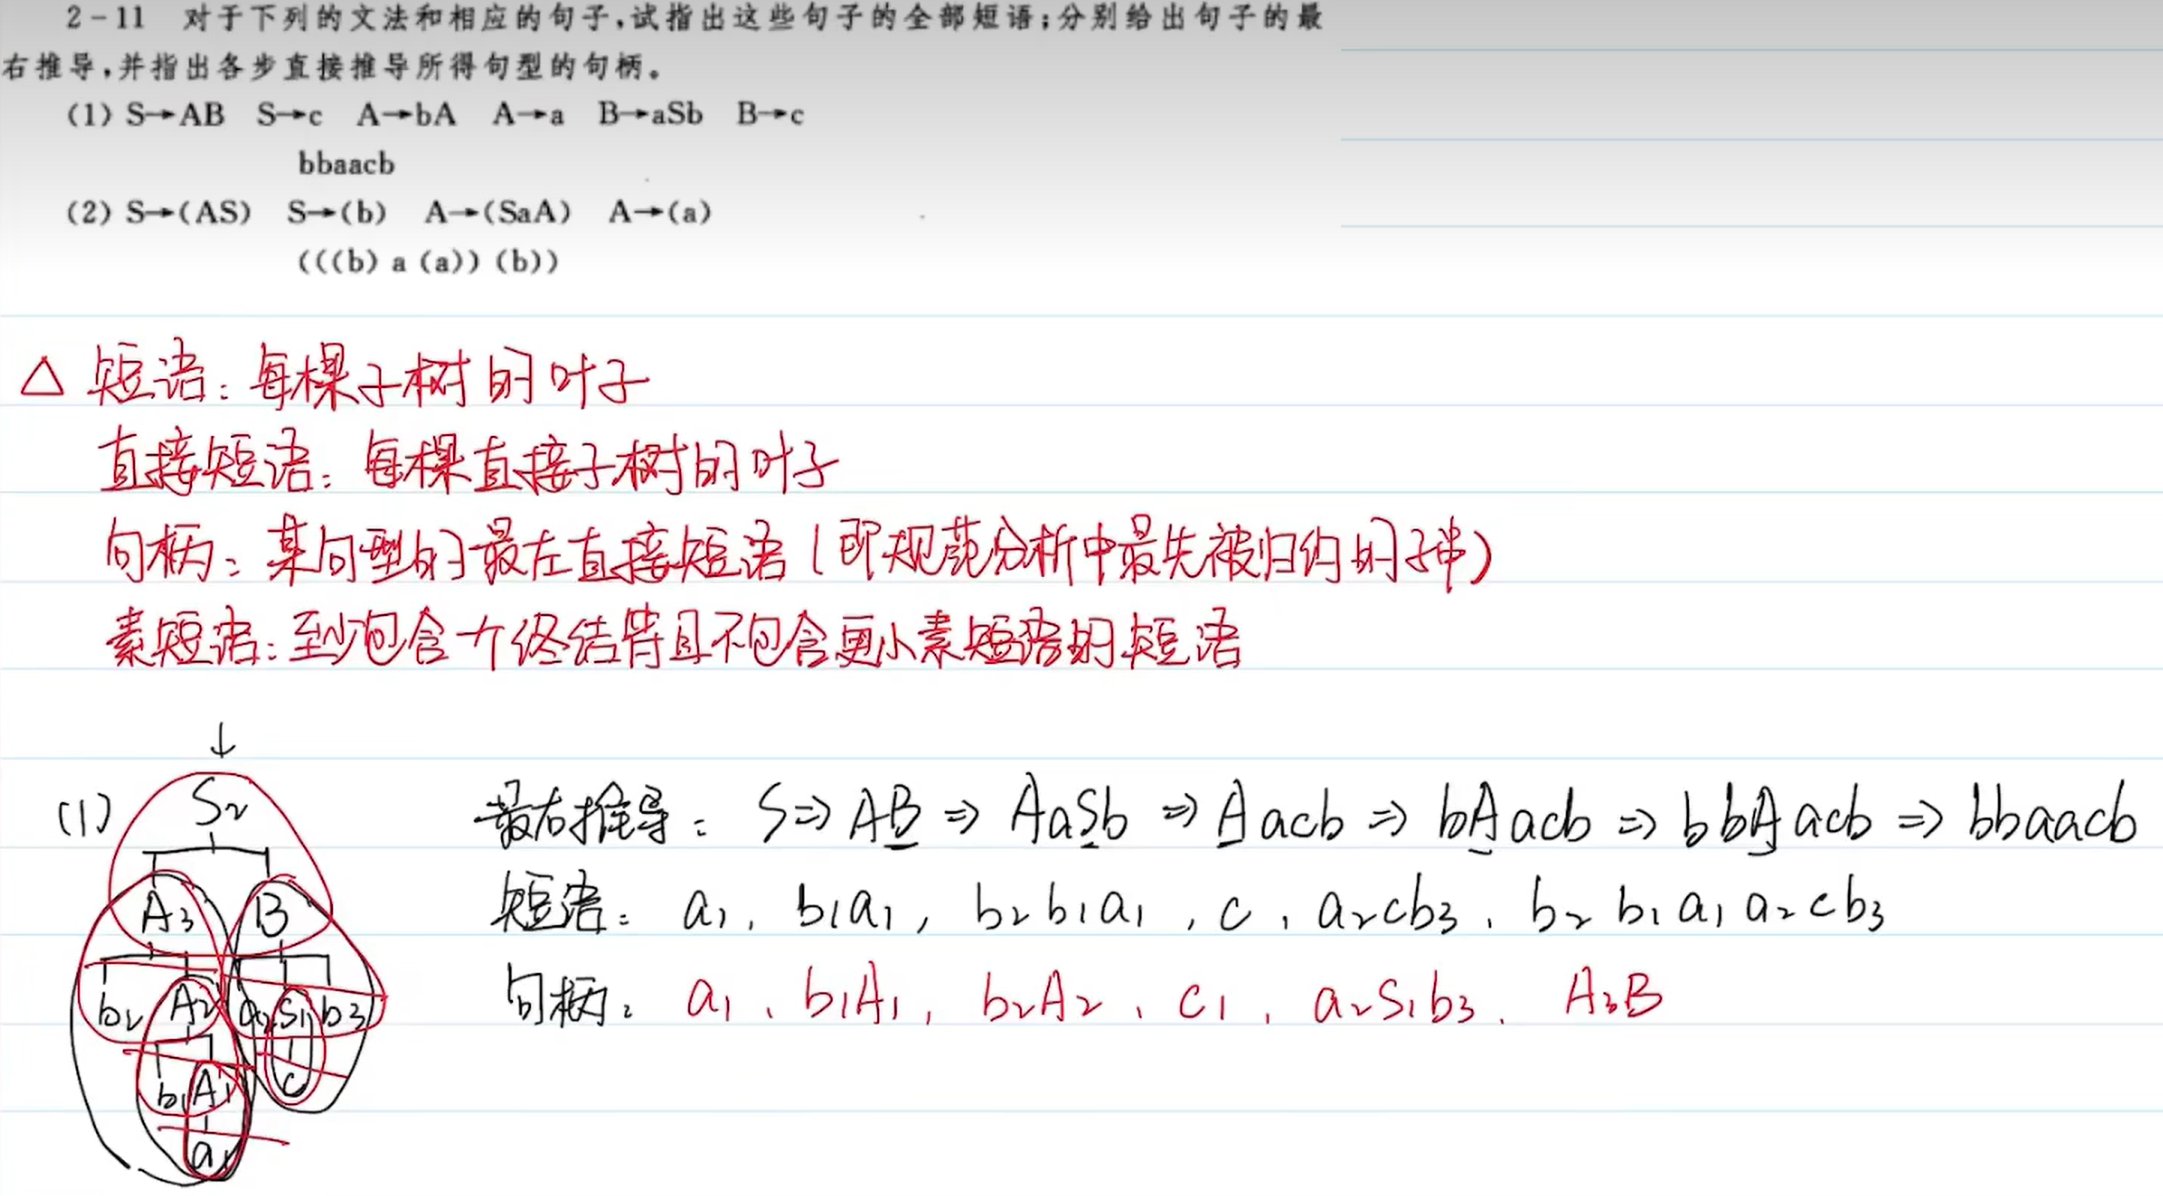 2-11 对于下列的文法和相应的句子,试指出这些句子的全部短语;分别给出句子的最
右推导,并指出各步直接推导所得句型的句柄。
(1) S→AB S→c A→bA A→a B→aSb B→c
bbaacb
(2) S→(AS) S→(b) A→(SaA) A→(a)
(((b) a (a)) (b))
△ 短语：每棵子树的叶子
直接短语：每棵直接子树的叶子
句柄：某句型的最左直接短语(即规范分析中最先被归约的子串)
素短语：至少包含一个终结符且不包含更小素短语的短语
↓
(1) S₂
A₃ B
b₂ A₂ a₂ S₁ b₃
b₁ A₁ c
a₁
最右推导： S⇒AB⇒AaSb⇒Aacb⇒bAacb⇒bbAacb⇒bbaacb
短语： a₁, b₁a₁, b₂b₁a₁, c, a₂cb₃, b₂b₁a₁a₂cb₃
句柄： a₁、b₁A₁, b₂A₂、c₁, a₂S₁b₃、A₃B